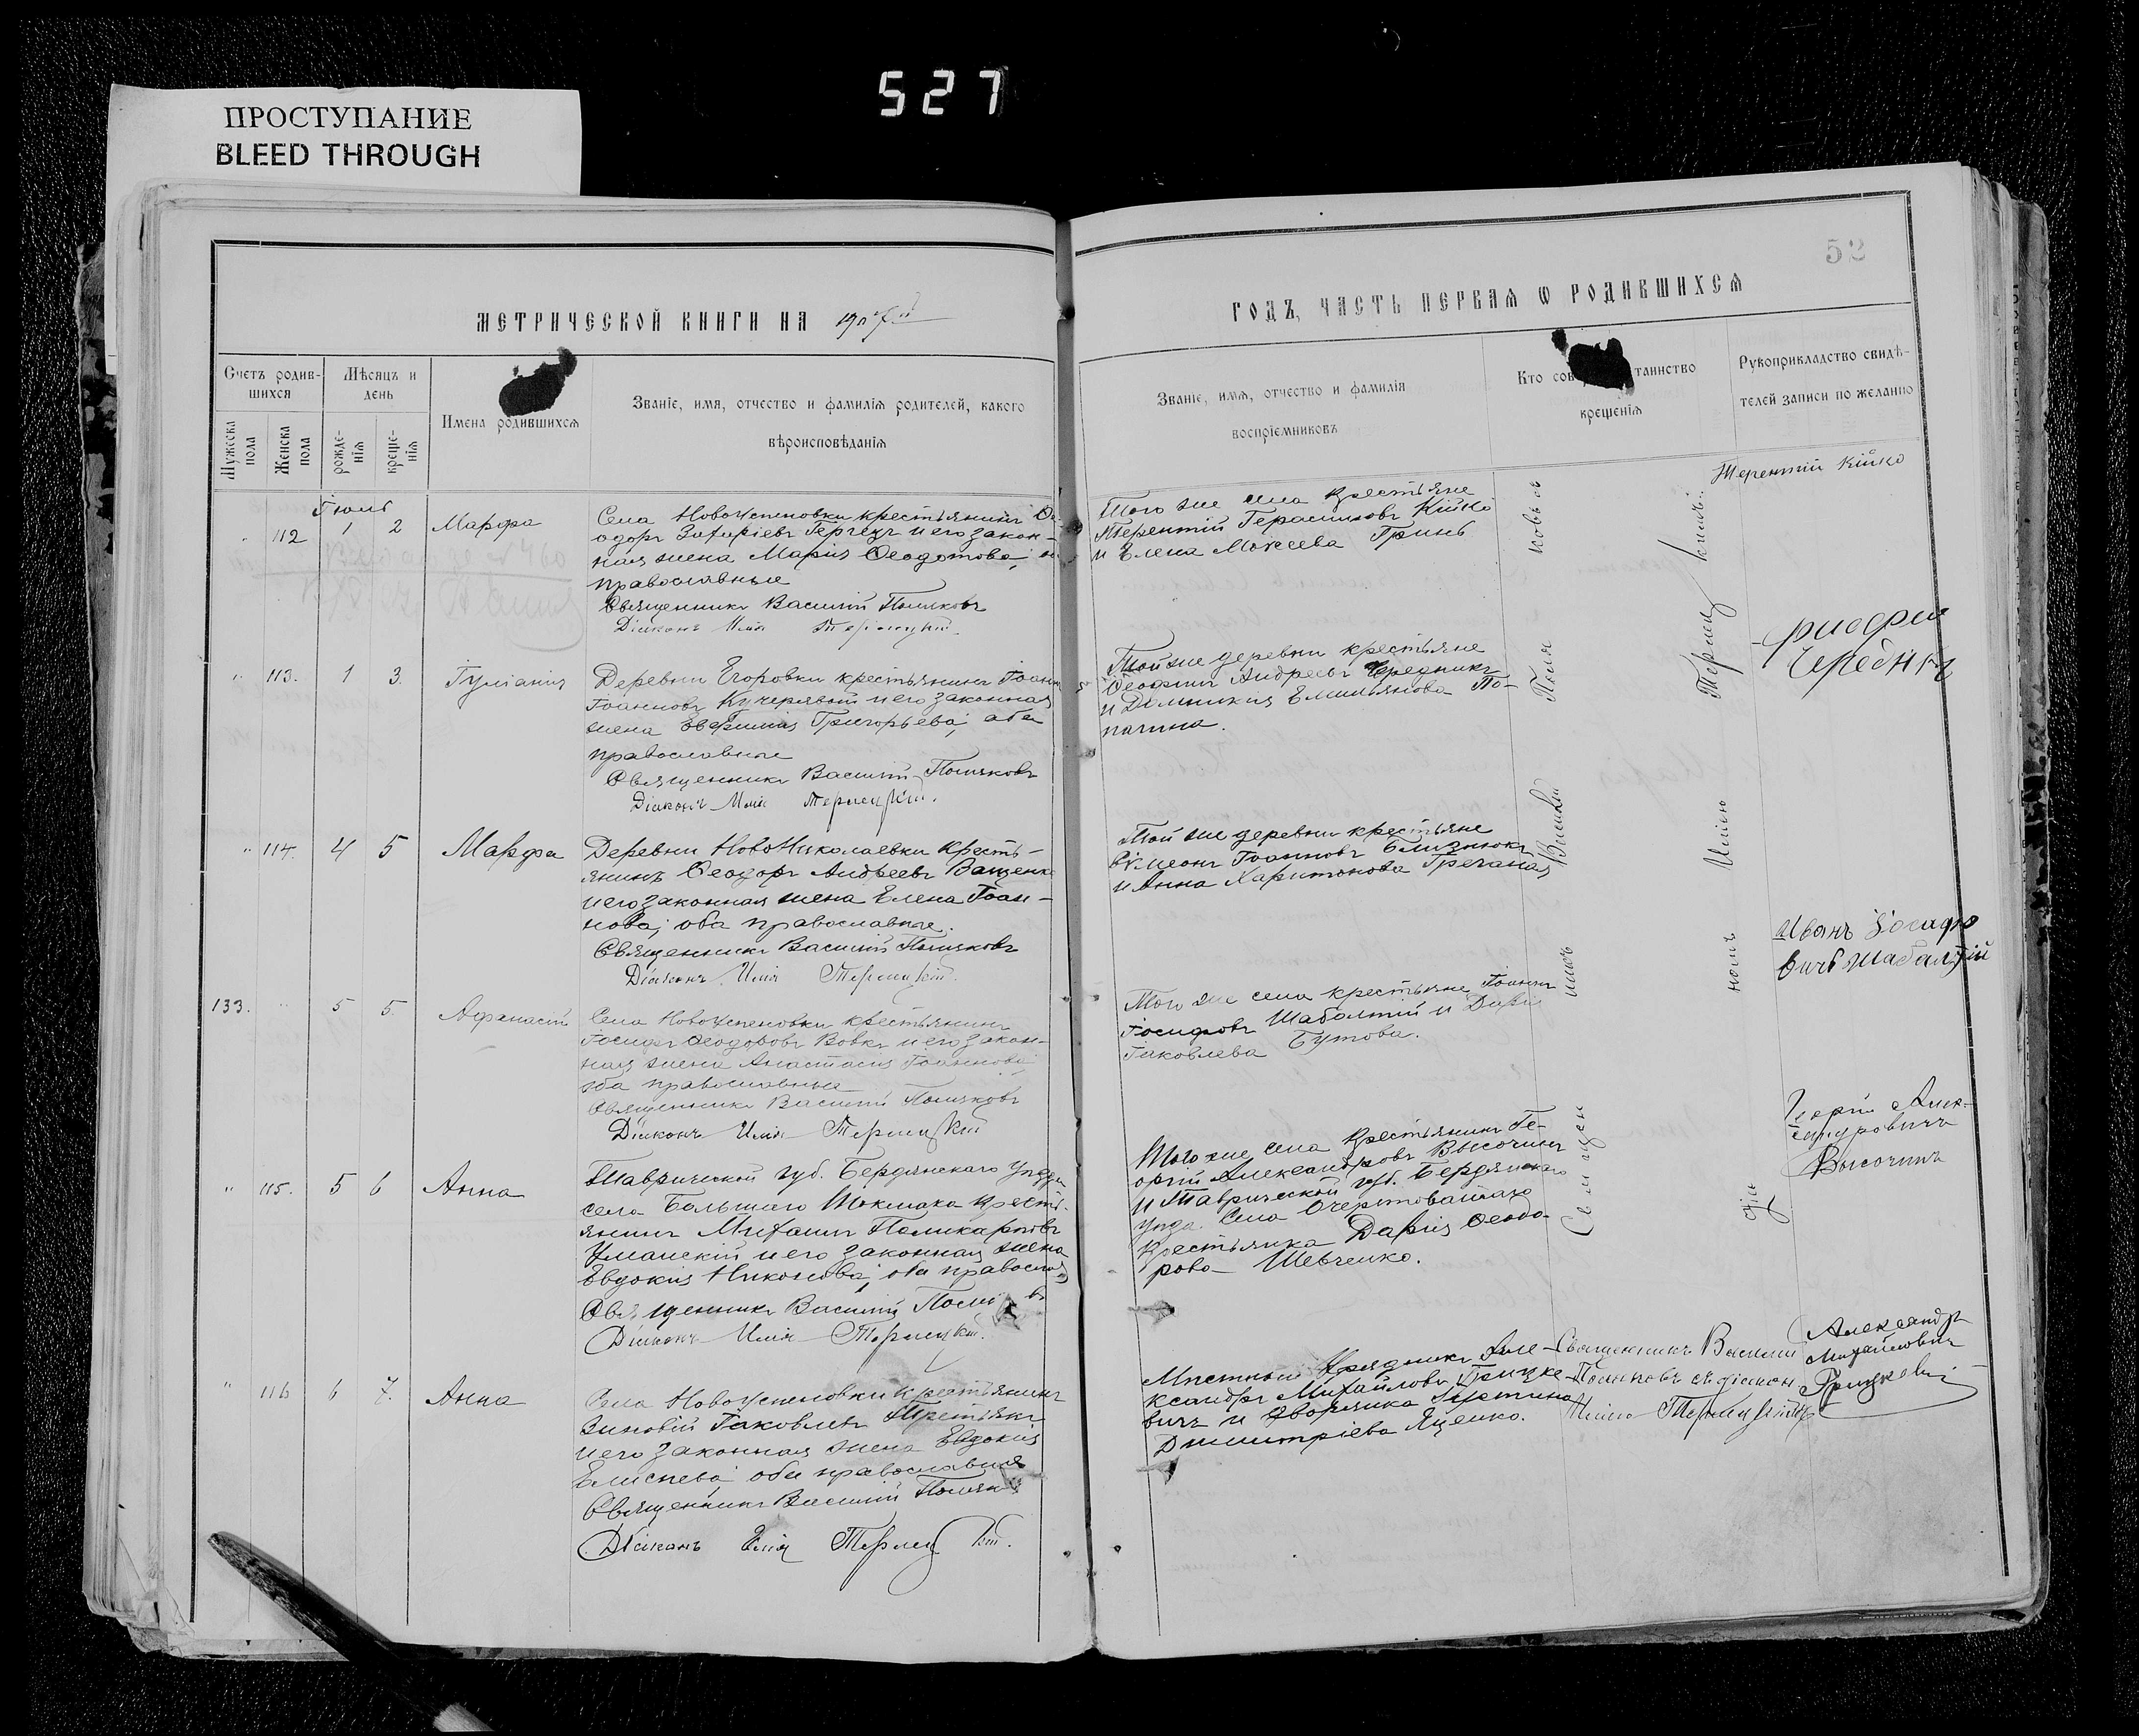 527
ПРОСТУПАНИЕ
BLEED THROUGH
52
МЕТРИЧЕСКОЙ КНИГИ НА 1907й
ГОДЪ, ЧАСТЬ ПЕРВАЯ Ѡ РОДИВШИХСЯ
Счетъ родив-
шихся
Мужеска
пола
Женска
пола
Мѣсяцъ и
день
рожде-
нія
креще-
нія
Имена родившихся
Званіе, имя, отчество и фамилія родителей, какого
вѣроисповѣданія
Званіе, имя, отчество и фамилія
воспріемниковъ
Кто сов таинство
крещенія
Рукоприкладство свидѣ-
телей записи по желанію
Іюль
" 112 1 2 Марфа
Села Новоуспеновки крестьянинъ Ѳе-
одоръ Захаріевъ и его закон-
ная жена Марія Ѳеодотова,
православные
Священникъ Василий Поляковъ
Діаконъ Илія Терлецкій.
Того же села крестьяне
Терентій Герасимовъ Кійко
и Елена Мокеева Гринь
Терентій Кійко
" 113. 1 3. Іуліанія
Деревни Егоровки крестьянинъ Іоаннъ
Іоанновъ Кучерявый и его законная
жена Евфимія Григорьева, оба
православные
Священникъ Василій Поляковъ
Діаконъ Илія Терлецкій.
Той же деревни крестьяне
Ѳеофилъ Андреевъ Чередникъ
и Домникія Емельянова По-
Чередникъ
" 114. 4 5 Марфа
Деревни Новониколаевки кресть-
янинъ Ѳеодоръ Андреевъ Ващенко
и его законная жена Елена Іоан-
нова; оба православные.
Священникъ Василій Поляковъ
Діаконъ Илія Терлецкій.
Той же деревни крестьяне
Сѵмеонъ Іоанновъ Близнюкъ
и Анна Харитонова Гречаная
133. " 5 5. Афанасій
Села Новоуспеновки крестьянинъ
Іосифъ Ѳеодоровъ Вовкъ и его закон-
ная жена Анастасія Іоаннова
оба православные
Священникъ Василій Поляковъ
Діаконъ Илія Терлецкій
Того же села крестьяне Іоаннъ
Іосифовъ Шабалтій и Дарія
Іаковлева Бутова.
Иванъ Іосифо
вичъ Шабалтій
" 115. 5 6 Анна
Таврической губ. Бердянскаго уезда
села Большаго Токмака кресть-
янинъ Михаилъ Поликарповъ
Уманскій и его законная жена
Евдокія Никонова; оба православные
Священникъ Василій
Діаконъ Илія Терлецкій.
Того же села крестьянинъ Ге-
оргій Александровъ Высочинъ
и Таврической губ. Бердянскаго
уезда. Села Очеретоватаго
крестьянка Дарія Ѳеодо-
рова Шевченко.
Георгій Алек-
сандровичъ
Высочинъ
" 116 6 7. Анна
Села Новоуспеновки крестьянинъ
Зиновій Іаковлевъ Третьякъ
и его законная жена Евдокія
Елисеева, оба православные
Священникъ Василій
Діаконъ Илія Терлецкій.
Местный Урядникъ Але-
ксандръ Михайловъ Грицке-
вичъ и дворянка
Димитріева Яценко.
Священникъ Василій
Поляковъ съ діакон
Иліею Терлецкимъ
Александръ
Михайловичъ
Грицкевичъ